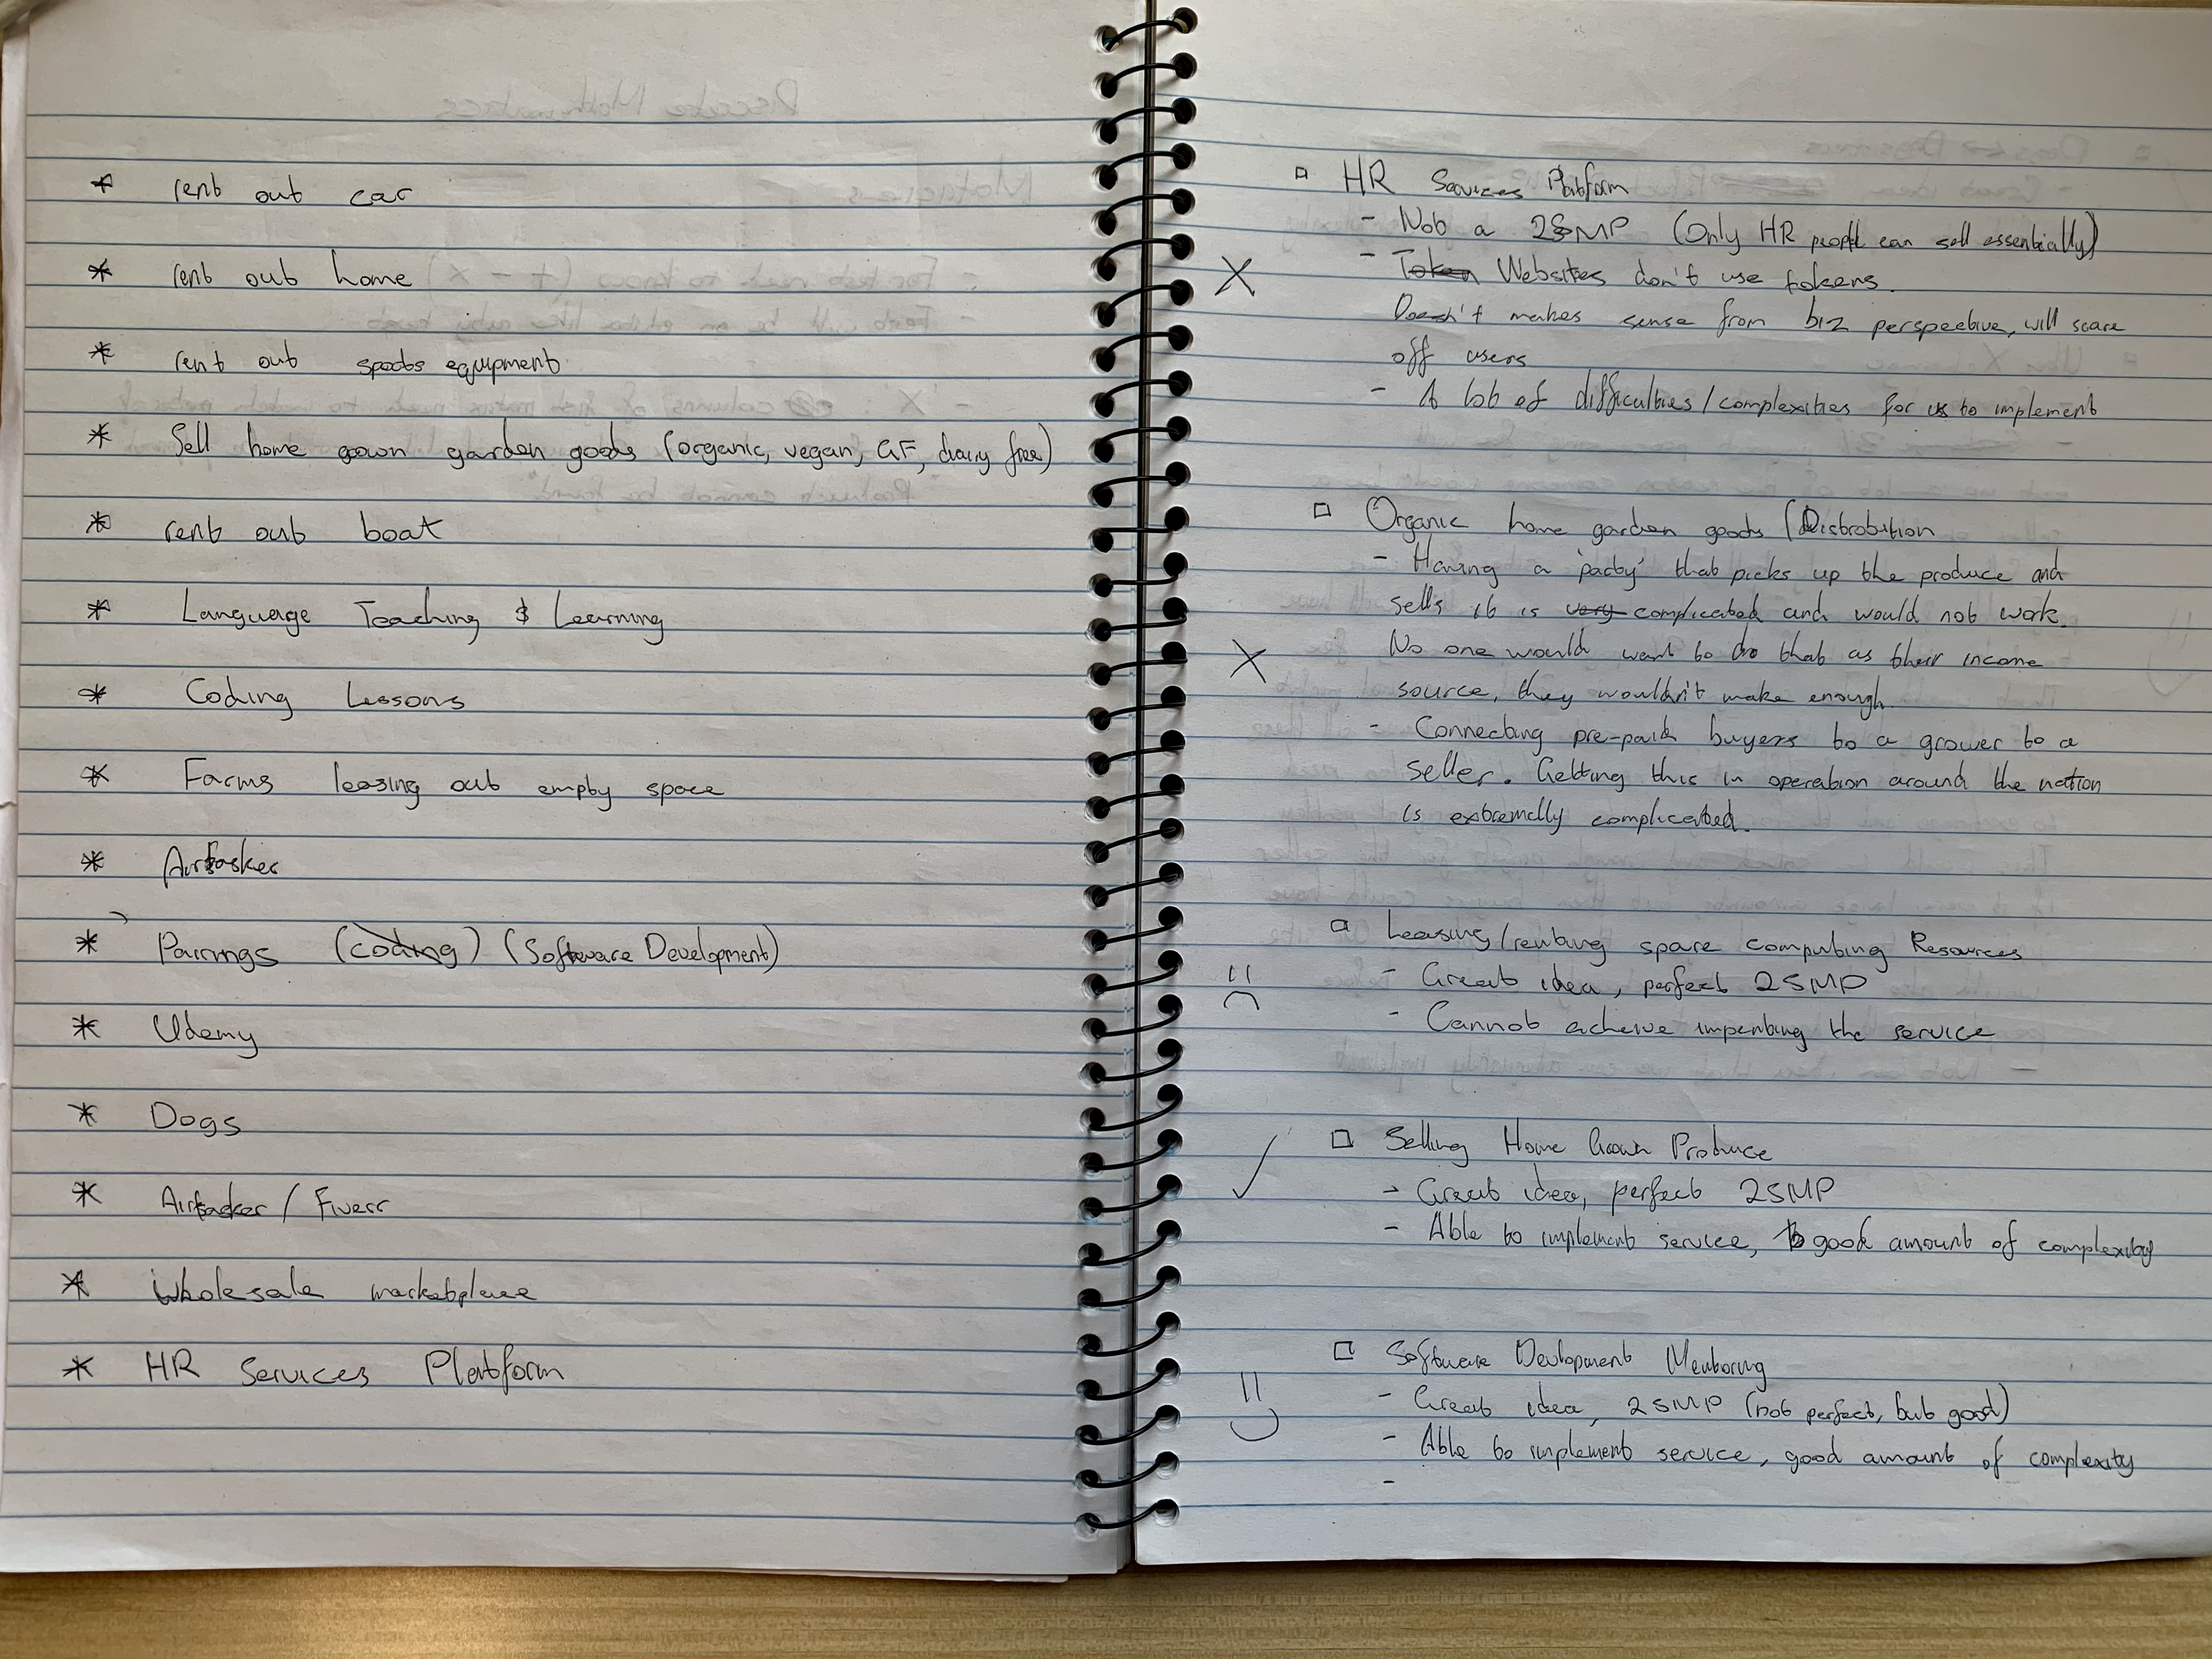 * rent out car
* rent out home
* rent out sports equipment
* Sell home grown garden goods (organic, vegan, GF, dairy free)
* rent out boat
* Language Teaching & Learning
* Coding Lessons
* Farms leasing out empty space
* Airtasker
* Pairings (coding) (Software Development)
* Udemy
* Dogs
* Airtasker / Fiverr
* Wholesale marketplace
* HR Services Platform
HR Services Platform
- Not a 2SMP (Only HR people can sell essentially)
- Token Websites don't use tokens.
Doesn't makes sense from biz perspective, will scare
off users
- A lot of difficulties/complexities for us to implement
X
Organic home garden goods (Distrobution
- Having a 'party' that picks up the produce and
sells it is very complicated and would not work.
No one would want to do that as their income
source, they wouldn't make enough.
- Connecting pre-paid buyers to a grower to a
seller. Getting this in operation around the nation
is extremelly complicated.
X
Leasing/renting spare computing Resources
- Great idea, perfect 2SMP
- Cannot acheive impenting the service
Selling Home Grown Produce
- Great idea, perfect 2SMP
- Able to implement service, good amount of complexity
✓
Software Devlopment Mentoring
- Great idea, 2SMP (not perfect, but good)
- Able to implement service, good amount of complexity
-